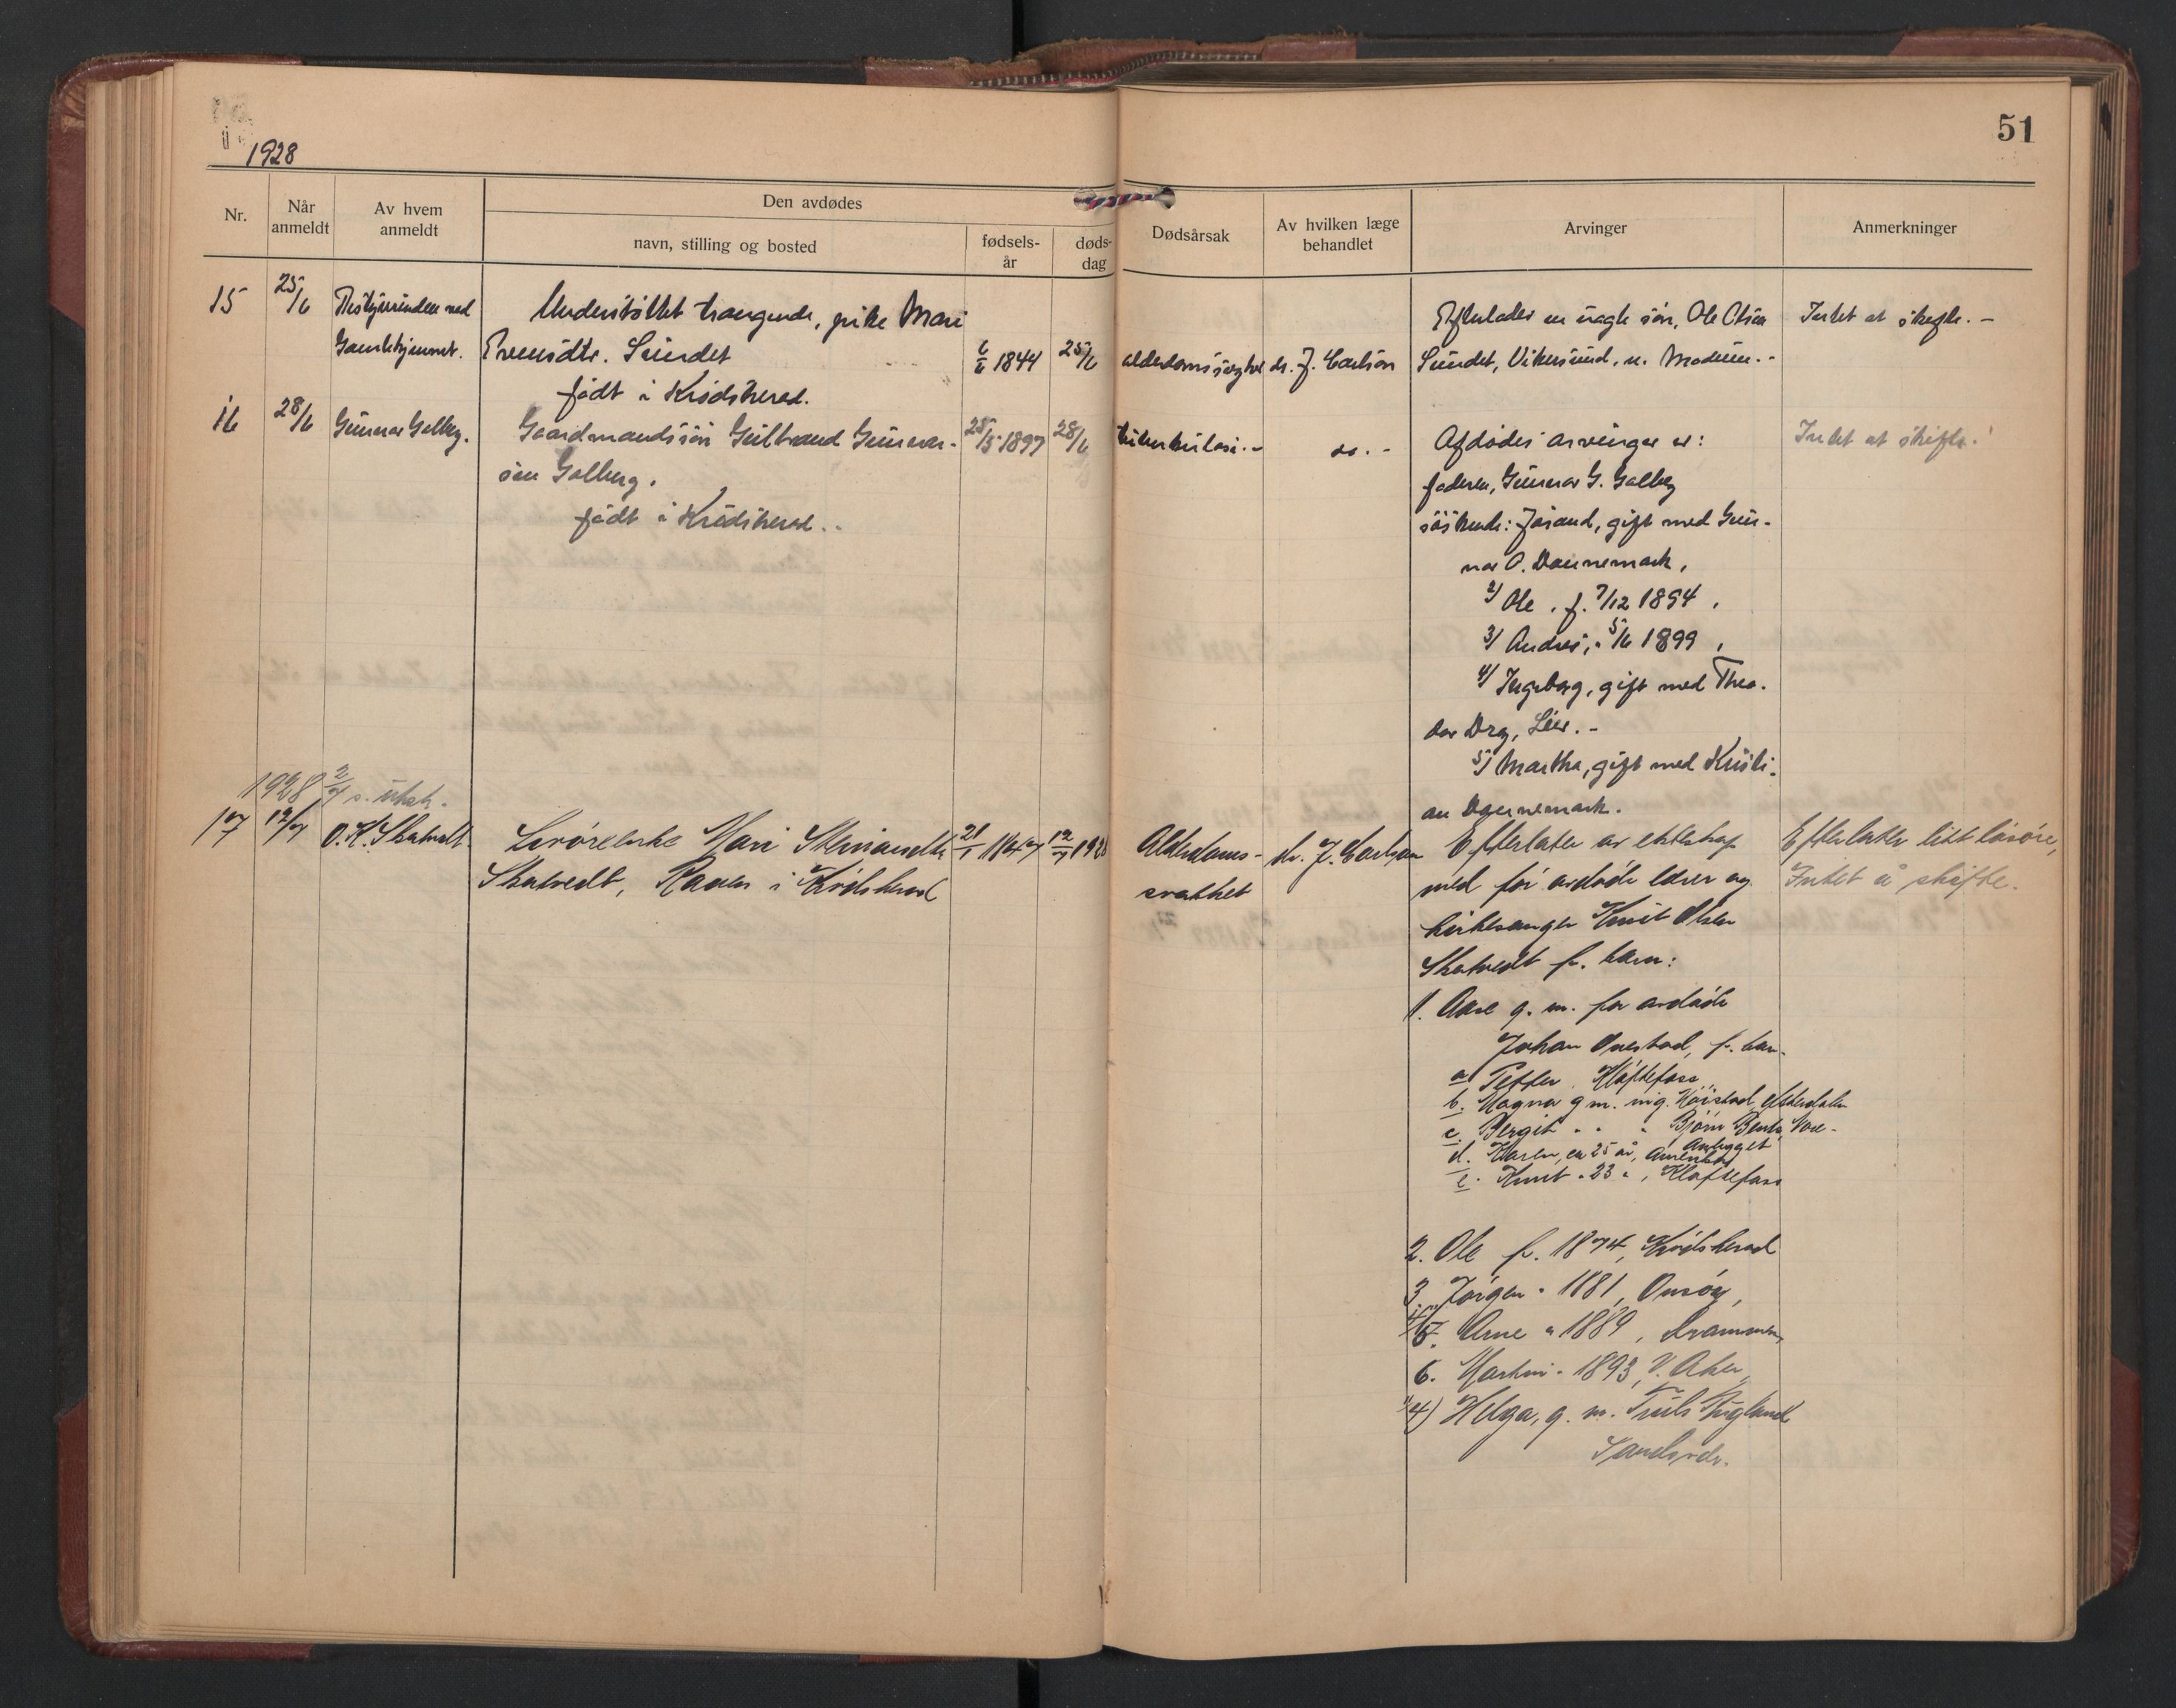 51
1928
Nr.
Når anmeldt
Av hvem anmeldt
Den avdødes
navn, stilling og bosted
fødsels-år
døds-dag
Dødsårsak
Av hvilken læge behandlet
Arvinger
Anmerkninger
15 25/6 Bestyrerinden ved
Gamlehjemmet.
Understöttet trængende, pike Mari
Evensdtr. Sundet
födt i Krödsherad.
6/6 1844 25/6 alderdomssvaghet dr. J. Carlson
Efterlader en uægte sön, Ole Olsen
Sundet, Vikersund, n. Modum.-
Intet at skifte.-
16 28/6 Gunnar Galberg.
Gaardmandssön Gulbrand Gunnar-
sen Galberg.
födt i Krödsherad..
25/5 1897 28/6 tuberkulose.- do.-
Afdödes arvinger er:
faderen, Gunnar G. Galberg
söskende: Jörand, gift med Gun-
nar O. Dannemark,
2) Ole, f. 7/12 1894,
3) Andres, " 5/6 1899,
4) Ingeborg, gift med Theo-
dor Drg, Lier.-
5) Martha, gift med Kristi-
an Dannemark.
Intet at skifte.
1928 2/7 s. utsk.
17 12/7 O.K. Skatvedt
Lærerenke Mari Steinarsdtr
Skatvedt, Raaen i Krödsherad
21/1 1847 12/7 1928
Alderdoms-
svakhet
dr. J. Carlson
Efterlater av ekteskap
med för avdöde lærer og
kirkesanger Knut Olsen
Skatvedt f. barn:
1. Aase g. m. for avdöde
Johan Onestad, f. barn.
a Petter, Kløftefoss
b. Magna g m. ing. Høistad, Østerdalen
c. Bergit " " " Bjørn Bentz, Nore-
Anlegget
d. Karen, ca 25 år, Amerika
e. Knut " 23 ", Kløftefoss
2. Ole f. 1874, Krödsherad
3. Jörgen " 1881, Onsöy,
5. Arne " 1889, Drammen,
6. Martin " 1893, V. Aker,
4) Helga, g. m. Truls Fuglund
Sandsvdr.
Efterlater litt løsøre,
Intet å skifte.